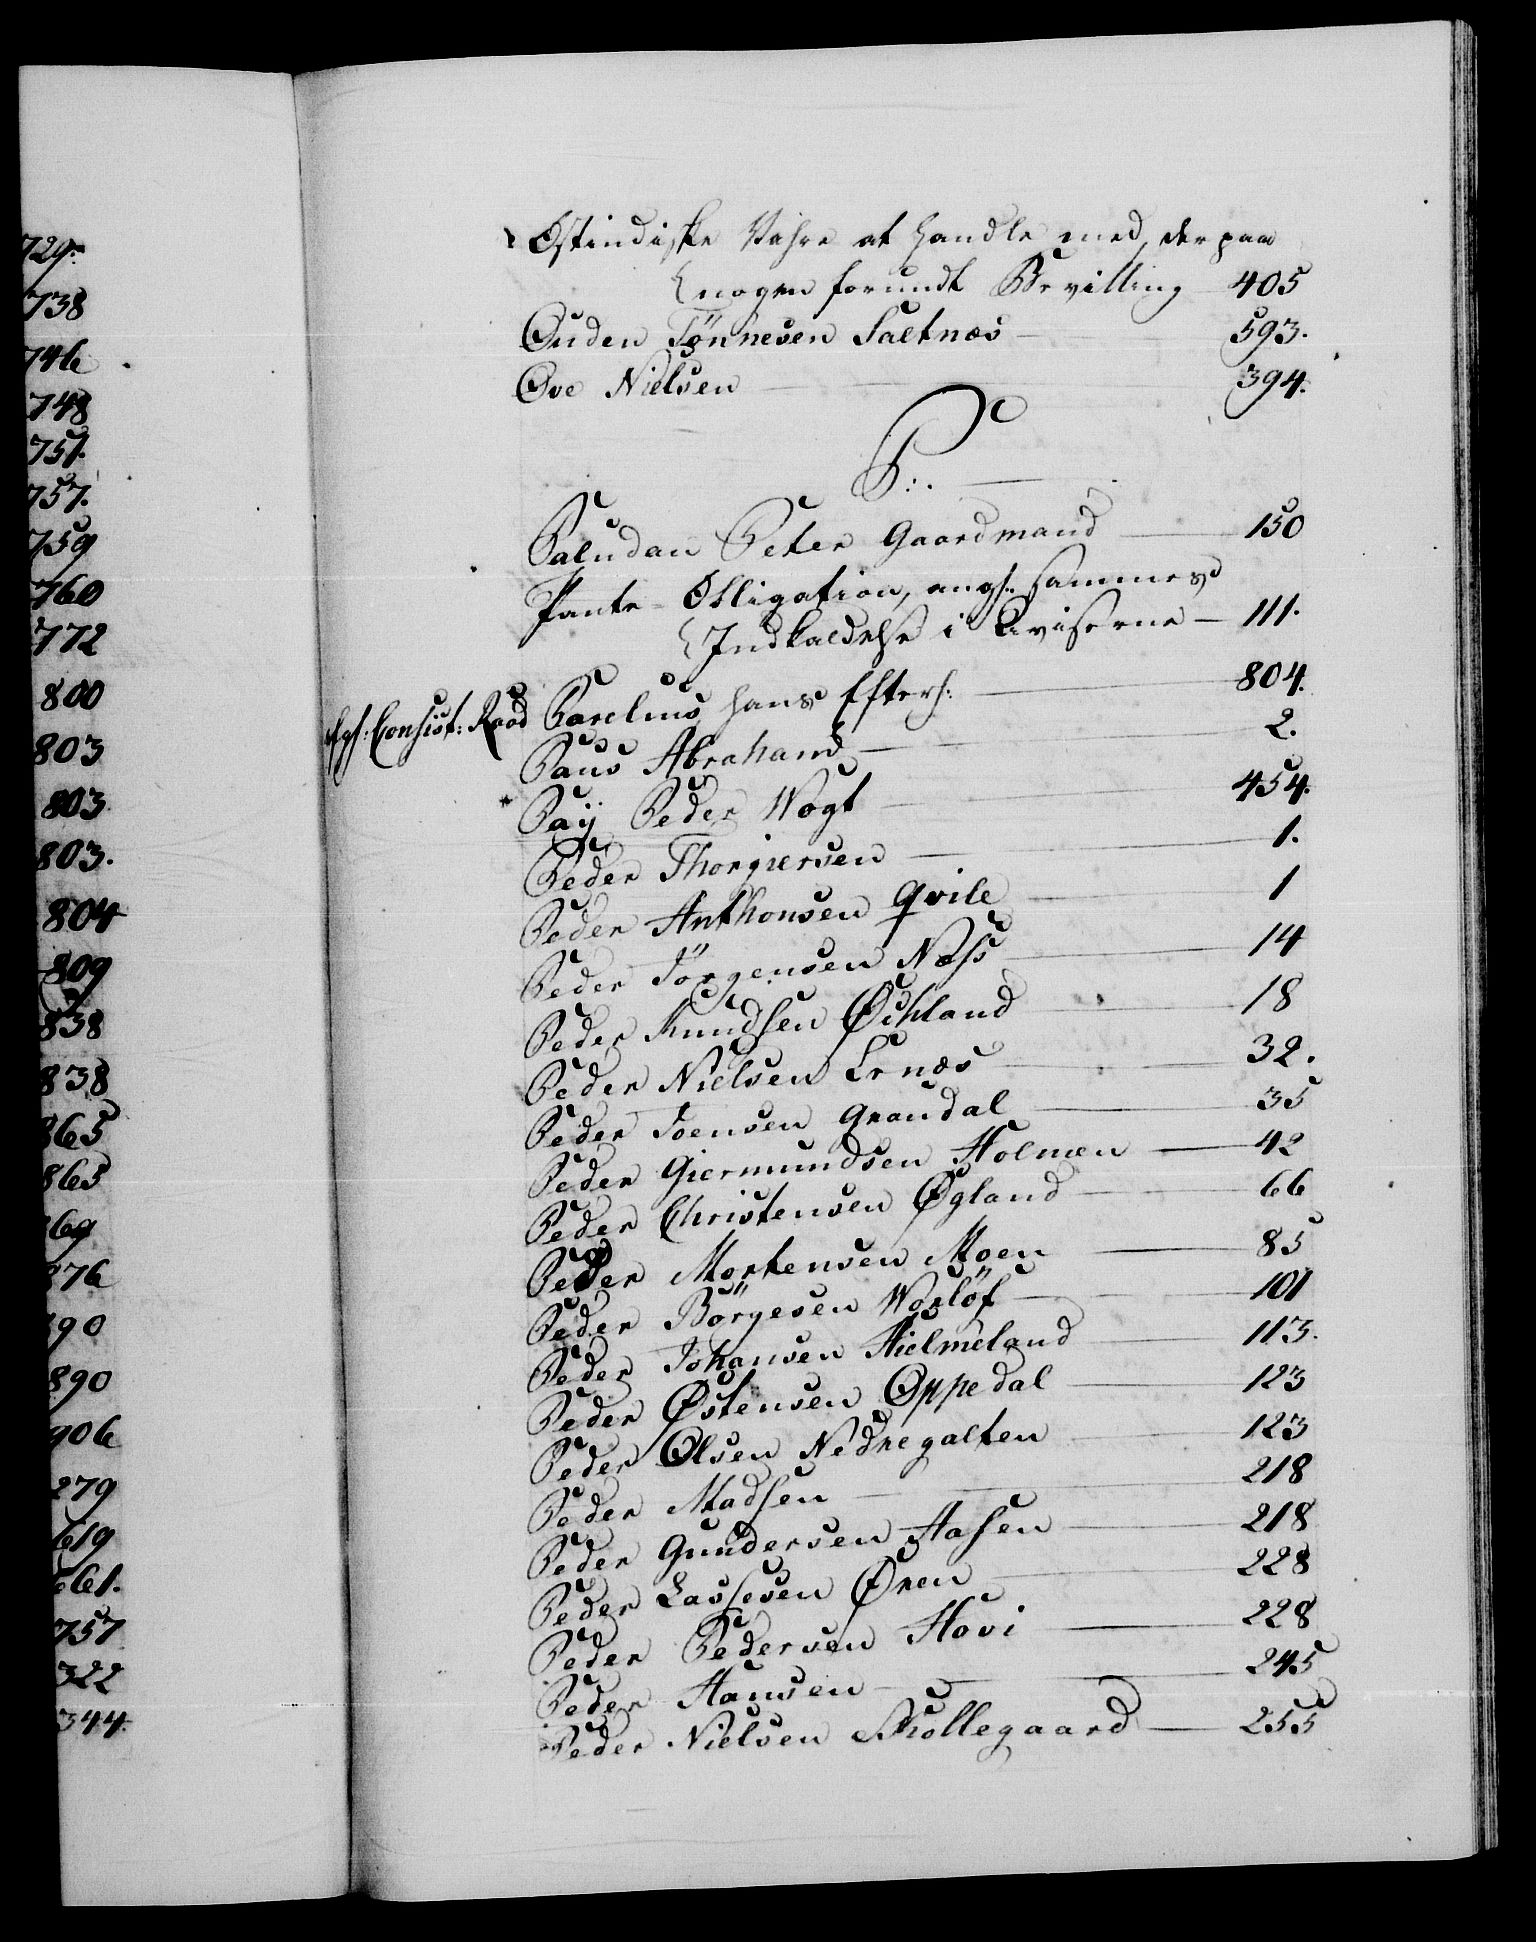 729.
738
746
748
751.
757.
759
760
772
800
803
803
803.
804
809
838
838
865
865
869
876
890
890
906
279
619
661.
757
322
344.
Østindiske Vahre at handle med, der paa
nogen forundt Bevilling 405
Ouden Tönnesen Saltnæs 593.
Ove Nielsen 394.
P:.
Paludan Peter Gaardmand 150
Pante-Obligation, angl: sammes
Indkaldelse i Aviserne 111.
Egl: Consist: Raad Parelius hans Efterl: 804.
Paus Abraham 2.
Paij Peder Wogt 454.
Peder Thorgiersen 1.
Peder Anthonsen Qvile 1
Peder Jörgensen Næss 14
Peder Knudsen Øckland 18
Peder Nielsen Ernæs 32.
Peder Joensen Grøndal 35
Peder Giermundsen Holmen 42
Peder Christensen Øgland 66
Peder Mortensen Moen 85
Peder Börgesen Worlöf 101
Peder Johansen Hielmeland 113.
Peder Østensen Oppedal 123
Peder Olsen Nedregalten 123
Peder Madsen 218
Peder Gundersen Aasen 218
Peder Lassesen Øren 228
Peder Pedersen Hovi 228
Peder Hansen 245
Peder Nielsen Skollegaard 255